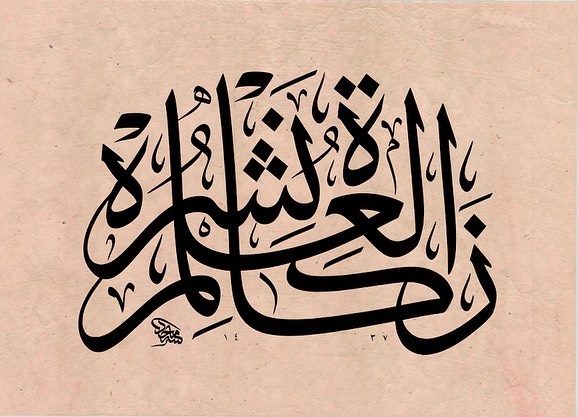 زَكَاةُ الْعِلْمِ نَشْرُهُ
١٤٣٧